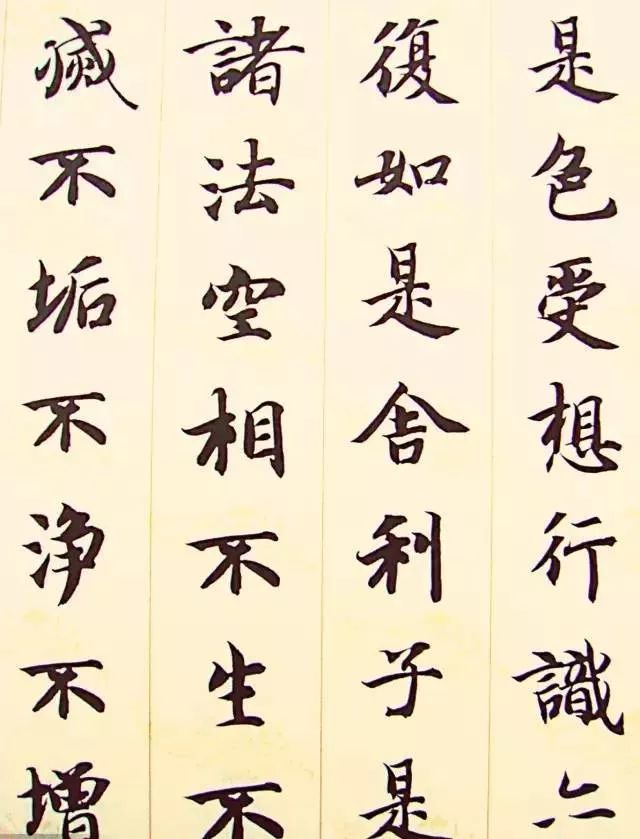 是色受想行識亦
復如是舍利子是
諸法空相不生不
滅不垢不淨不增